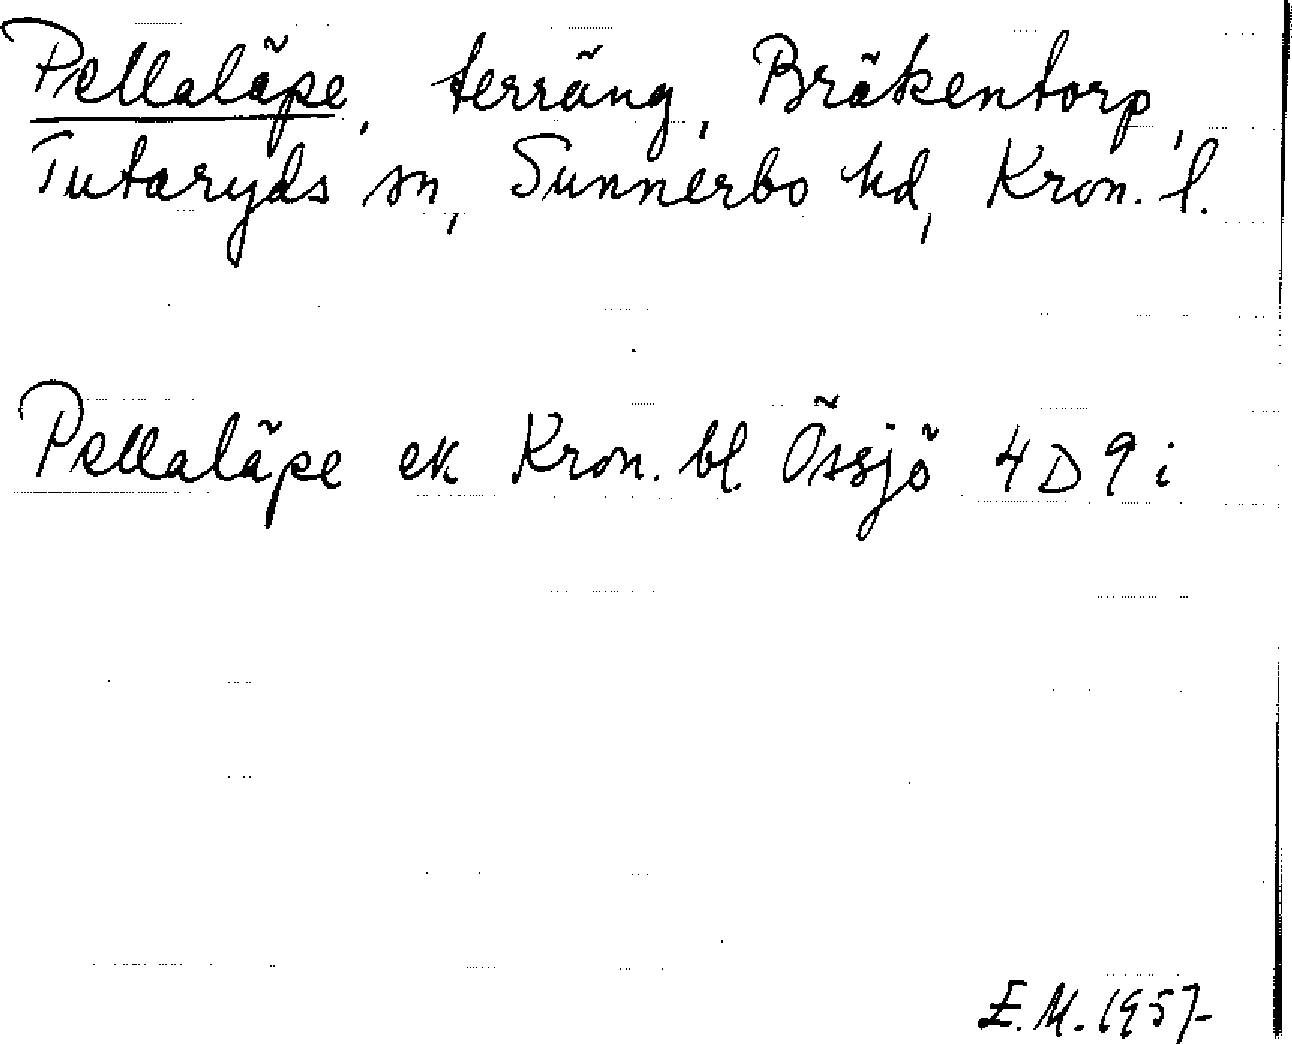 Pellaläpe, terräng, Bräkentorp,
Tutaryds sn, Sunnerbo hd, Kron. l.
Pellaläpe ek Kron. bl. Össjö 4 D 9 i
E.M. 1957